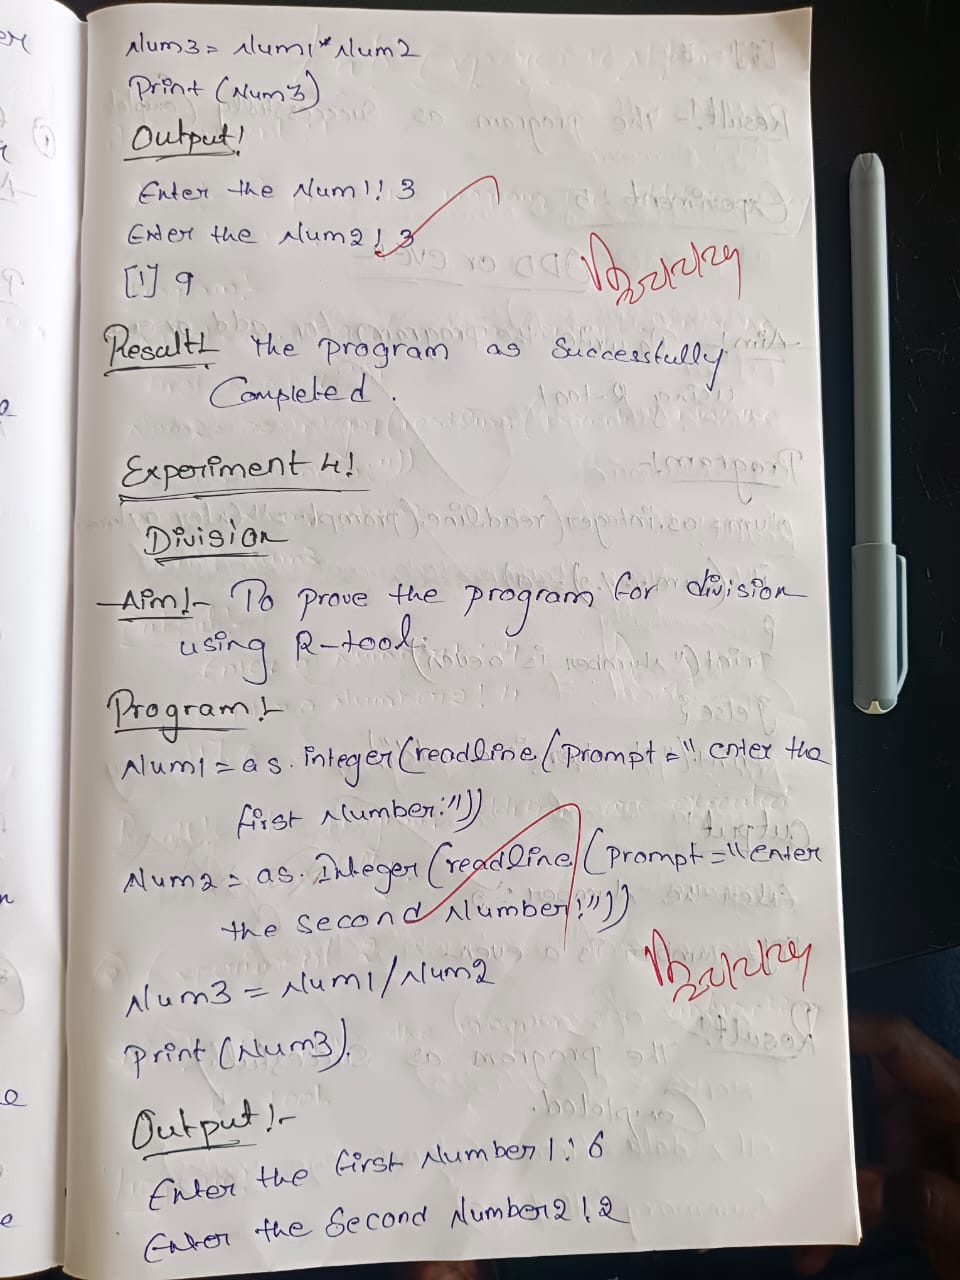 Num3 = Num1*Num2
Print (Num3)
Output!
Enter the Num1: 3
Enter the Num2: 3
[1] 9
Result:- the program as Successfully
Completed.
Experiment 4!
Division
Aim:- To prove the program for division
using R-tool.
Program:-
Num1 = as. integer(readline(prompt = " enter the
first Number:"))
Num2 = as. Integer(readline(prompt = "enter
the second Number:"))
Num3 = Num1/Num2
print (Num3).
Output:-
Enter the first Number1: 6
Enter the Second Number2: 2